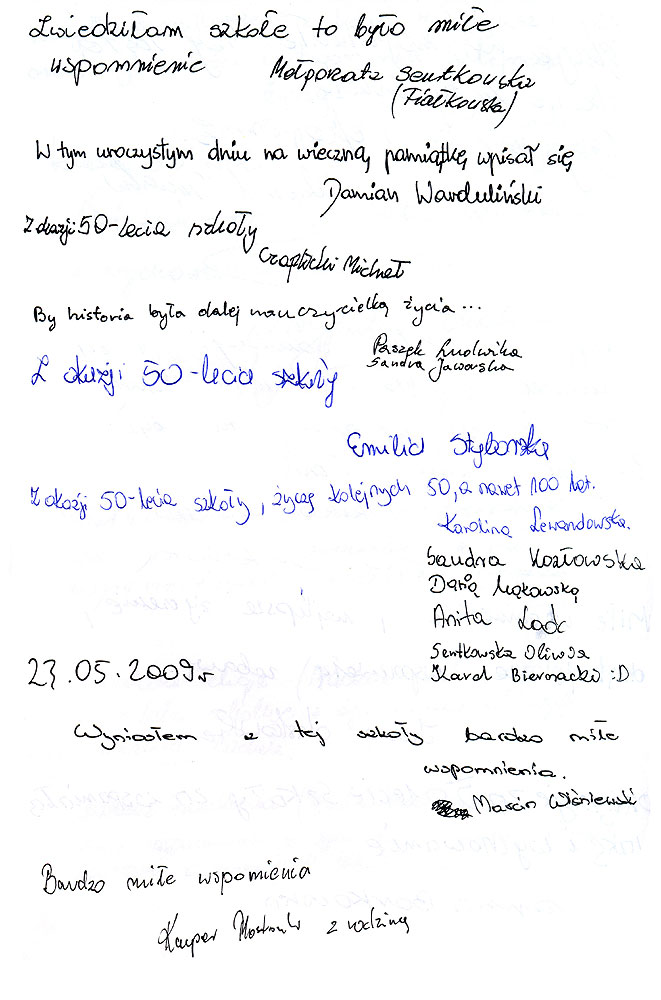 Zwiedziłam szkołe to było miłe
wspomnienie Małgorzata Sentkowska
(Fiałkowska)
W tym uroczystym dniu na wieczną pamiątkę wpisał się
Damian Warduliński
Z okazji 50-lecia szkoły
Czaplicki Michał
By historia była dalej nauczycielką życia...
Paszek Ludwika
Sandra Jaworska
Z okazji 50-lecia szkoły
Emilia Styborska
Z okazji 50-lecia szkoły, życzę kolejnych 50, a nawet 100 lat.
Karolina Lewandowska.
Sandra Kozłowska
Daria Makowska
Anita Ladc
Sentkowska Oliwia
23.05.2009r Karol Biernacki :D
Wyniosłem z tej szkoły bardzo miłe
wspomnienia.
Marcin Wiśniewski
Bardzo miłe wspomienia
Kacper z rodziną